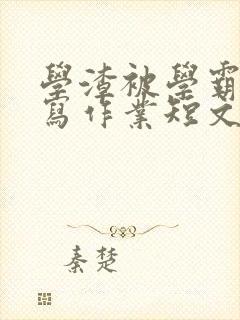 學渣被學霸
寫作業短文
秦楚